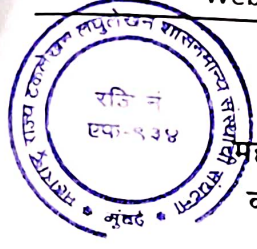 Web
महाराष्ट्र राज्य टंकलेखन लघुलेखन शासनमान्य संस्थांची संघटना
रजि नं
एफ-९३४
मुंबई